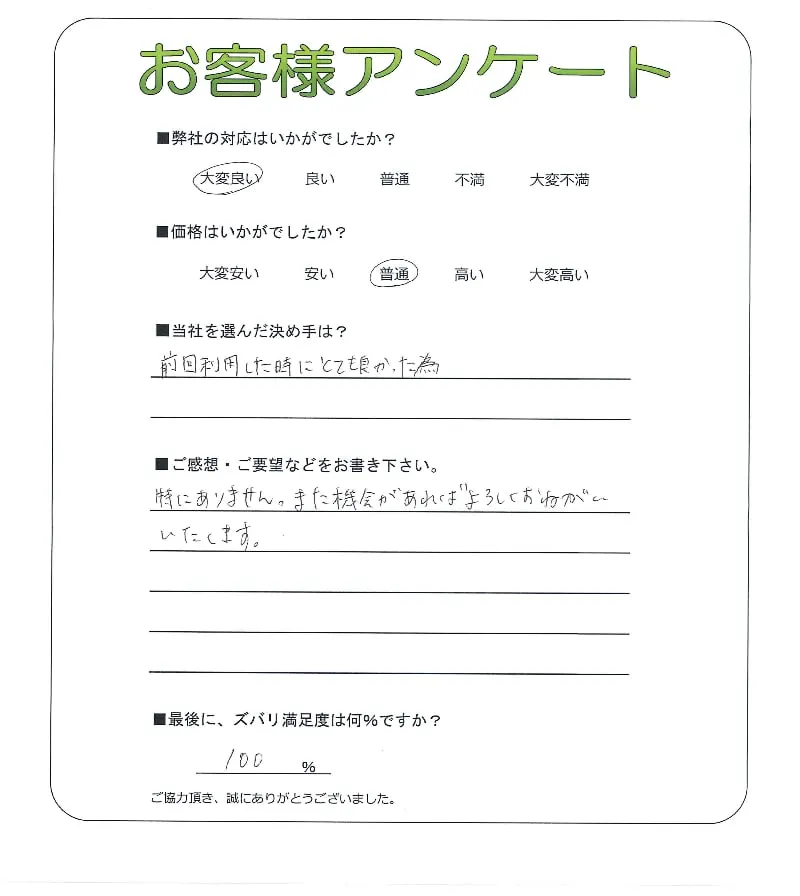 お客様アンケート
■弊社の対応はいかがでしたか？
大変良い 良い 普通 不満 大変不満
■価格はいかがでしたか？
大変安い 安い 普通 高い 大変高い
■当社を選んだ決め手は？
前回利用した時にとても良かった為
■ご感想・ご要望などをお書き下さい。
特にありません。また機会があればよろしくおねがい
いたします。
■最後に、ズバリ満足度は何％ですか？
100 %
ご協力頂き、誠にありがとうございました。